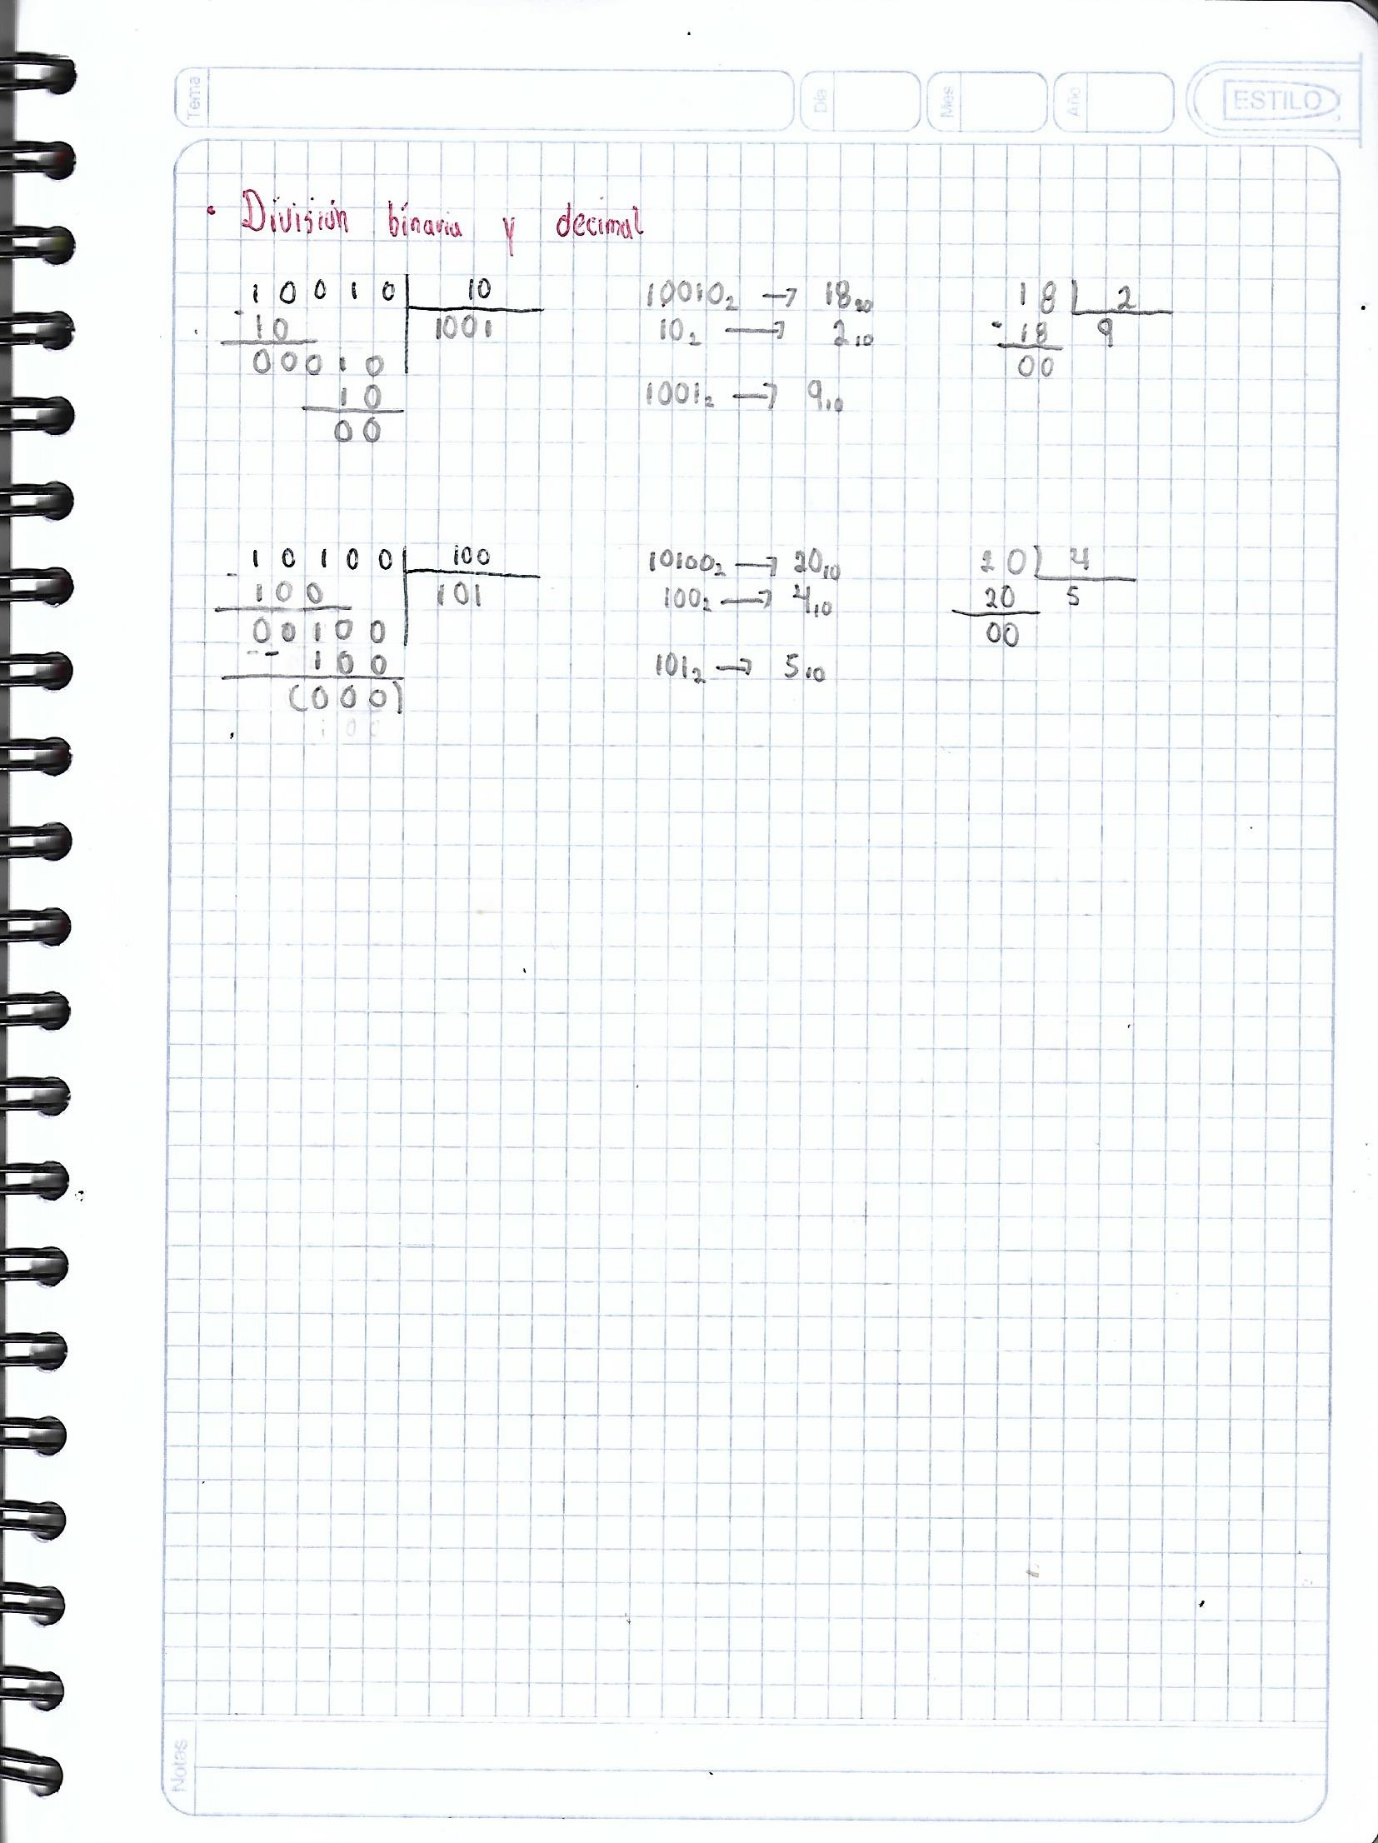 Tema
Día
Mes
Año
ESTILO
• División binaria y decimal
1 0 0 1 0 | 10
- 10 | 1001
0 0 0 1 0
1 0
0 0
10010₂ → 18₂₀
10₂ → 2₁₀
1001₂ → 9₁₀
18 | 2
- 18 9
00
1 0 1 0 0 | 100
- 1 0 0 | 101
0 0 1 0 0
-- 1 0 0
(0 0 0)
10100₂ → 20₁₀
100₂ → 4₁₀
101₂ → 5₁₀
20 | 4
20 5
00
Notas